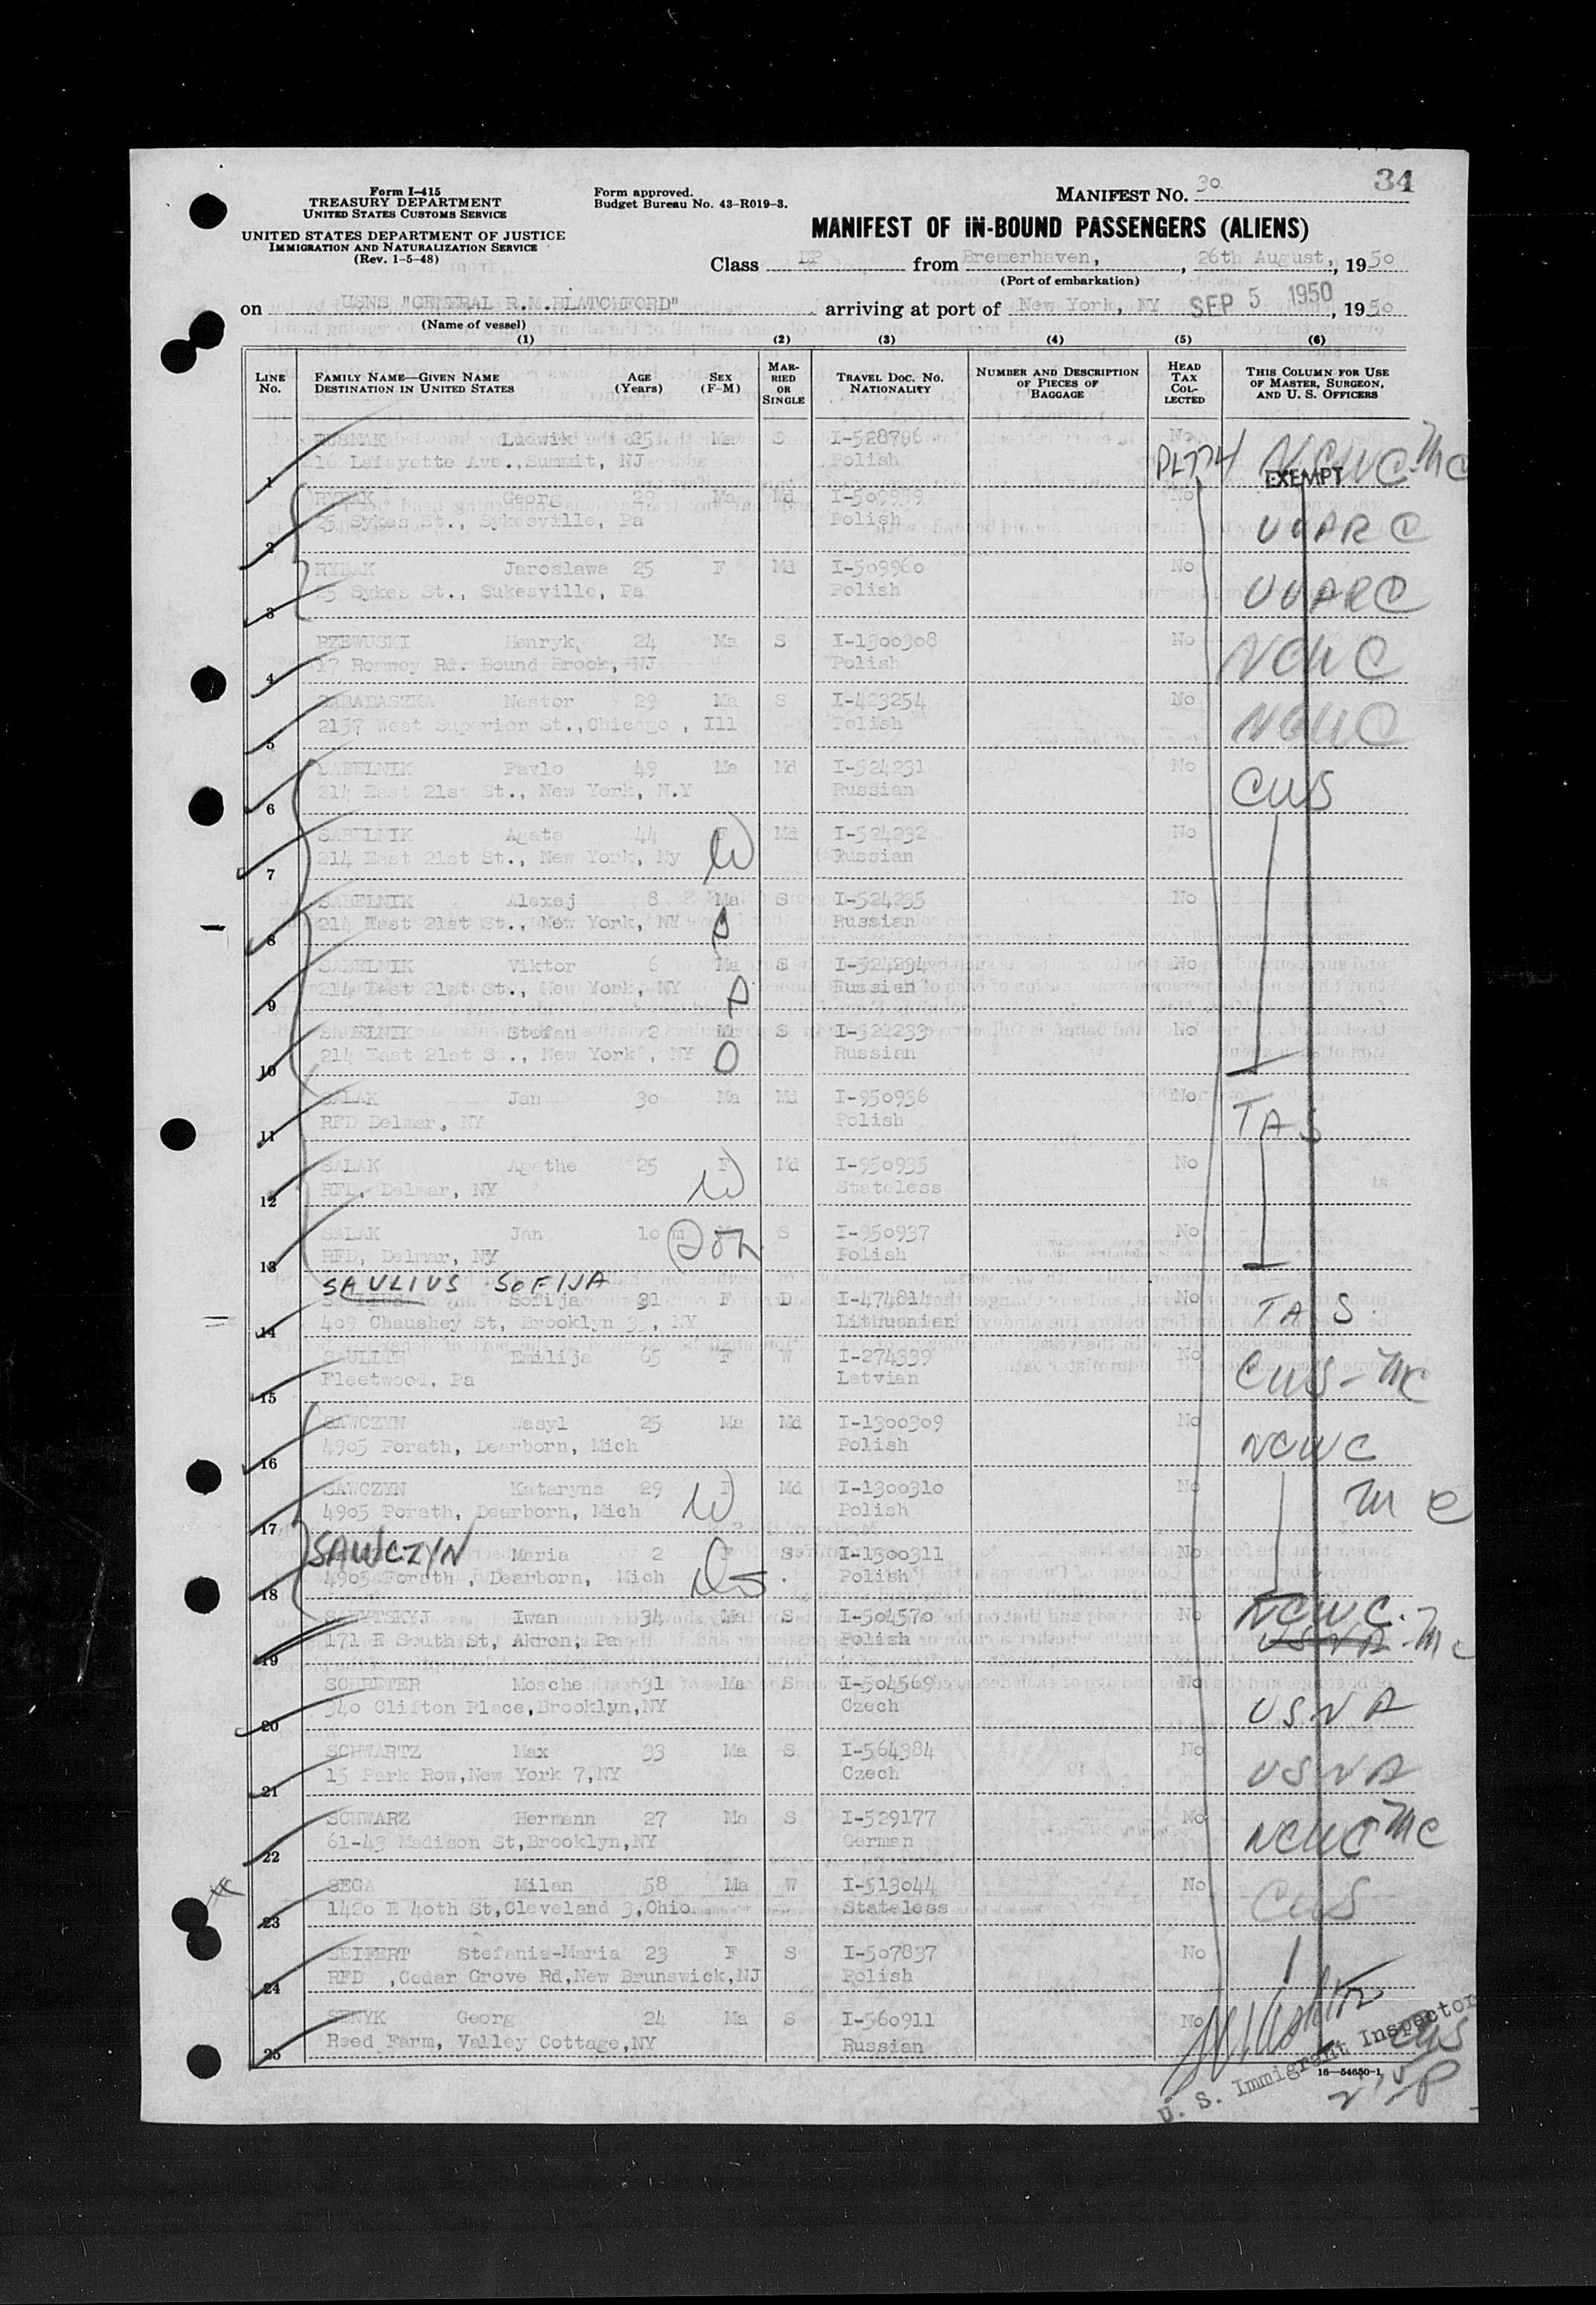 34
Form I-415
TREASURY DEPARTMENT
UNITED STATES CUSTOMS SERVICE
UNITED STATES DEPARTMENT OF JUSTICE
IMMIGRATION AND NATURALIZATION SERVICE
(Rev. 1-5-48)
Form approved.
Budget Bureau No. 43-R019-3.
MANIFEST NO. 30
MANIFEST OF IN-BOUND PASSENGERS (ALIENS)
Class DP from Bremerhaven, , 26th August, , 1950
(Port of embarkation)
on USNS "GENERAL R.M.BLATCHFORD" arriving at port of New York, NY SEP 5 1950 , 1950
(Name of vessel)
(1) (2) (3) (4) (5) (6)
LINE No. FAMILY NAME—GIVEN NAME DESTINATION IN UNITED STATES AGE (Years) SEX (F-M) MARRIED OR SINGLE TRAVEL DOC. NO. NATIONALITY NUMBER AND DESCRIPTION OF PIECES OF BAGGAGE HEAD TAX COLLECTED THIS COLUMN FOR USE OF MASTER, SURGEON, AND U. S. OFFICERS
Ludwik 25 Ma S I-528796 No NCWC-Mc
1 16 Lafayette Ave.,Summit, NJ Polish PL774 EXEMPT
RYBAK Georg 29 Ma Md I-509959 No
2 25 Sykes St., Sykesville, Pa Polish UUARC
RYBAK Jaroslawa 25 F Md I-509960 No
3 25 Sykes St., Sukesville, Pa Polish UUARC
RZEWUSKI Henryk 24 Ma S I-1300308 No
4 17 Romwey Rd. Bound Brook, NJ Polish NCWC
Nestor 29 Ma S I-423254 No
5 2157 West Superior St.,Chicago , Ill Polish NCWC
SABELNIK Pavlo 49 Ma Md I-524231 No
6 214 East 21st St., New York, N.Y Russian CWS
SABELNIK Agata 44 F Md I-524232 No
7 214 East 21st St., New York, Ny W Russian
SABELNIK Alexej 8 Ma S I-524235 No
8 214 East 21st St., New York, NY Russian
SABELNIK Viktor 6 Ma S I-524234 No
9 214 East 21st St., New York, NY Russian
SABELNIK Stefan 2 Ma S I-524233 No
10 214 East 21st St., New York , NY Russian
SALAK Jan 30 Ma Md I-950936 No
11 RFD Delmar, NY Polish TAS
SALAK Agathe 25 F Md I-950935 No
12 RFD, Delmar, NY W Stateless
SALAK Jan 10 m S I-950937 No
13 RFD, Delmar, NY Polish
SAULIUS SOFIJA
Sofija 31 F D I-474814 No TAS.
14 409 Chaushey St, Brooklyn 33, NY Lithuanian
Emilija 65 F W I-274339 No
15 Fleetwood, Pa Latvian CWS-Mc
SAWCZYN Wasyl 25 Ma Md I-1300309 No
16 4905 Forath, Dearborn, Mich Polish NCWC
SAWCZYN Kataryna 29 F Md I-1300310 No
17 4905 Forath, Dearborn, Mich W Polish Mc
SAWCZYN Maria 2 F S I-1300311 No
18 4905 Forath , Dearborn, Mich Polish
Iwan 34 Ma S I-504570 No NCWC.
19 171 E South St, Akron, Pa Polish USNA-Mc
SCHRETER Mosche 31 Ma S I-504569 No
20 340 Clifton Place,Brooklyn,NY Czech USNA
SCHWARTZ Max 33 Ma S I-564384 No
21 15 Park Row,New York 7,NY Czech USNA
SCHWARZ Hermann 27 Ma S I-529177 No
22 61-43 Madison St,Brooklyn,NY German NCWC Mc
SEGA Milan 58 Ma W I-513044 No
23 1420 E 40th St,Cleveland 3,Ohio Stateless CWS
SEIFERT Stefania-Maria 23 F S I-507837 No
24 RFD ,Cedar Grove Rd,New Brunswick,NJ Polish
SENYK Georg 24 Ma S I-560911 No
25 Reed Farm, Valley Cottage,NY Russian CWS
U. S. Immigrant Inspector
16—54650-1